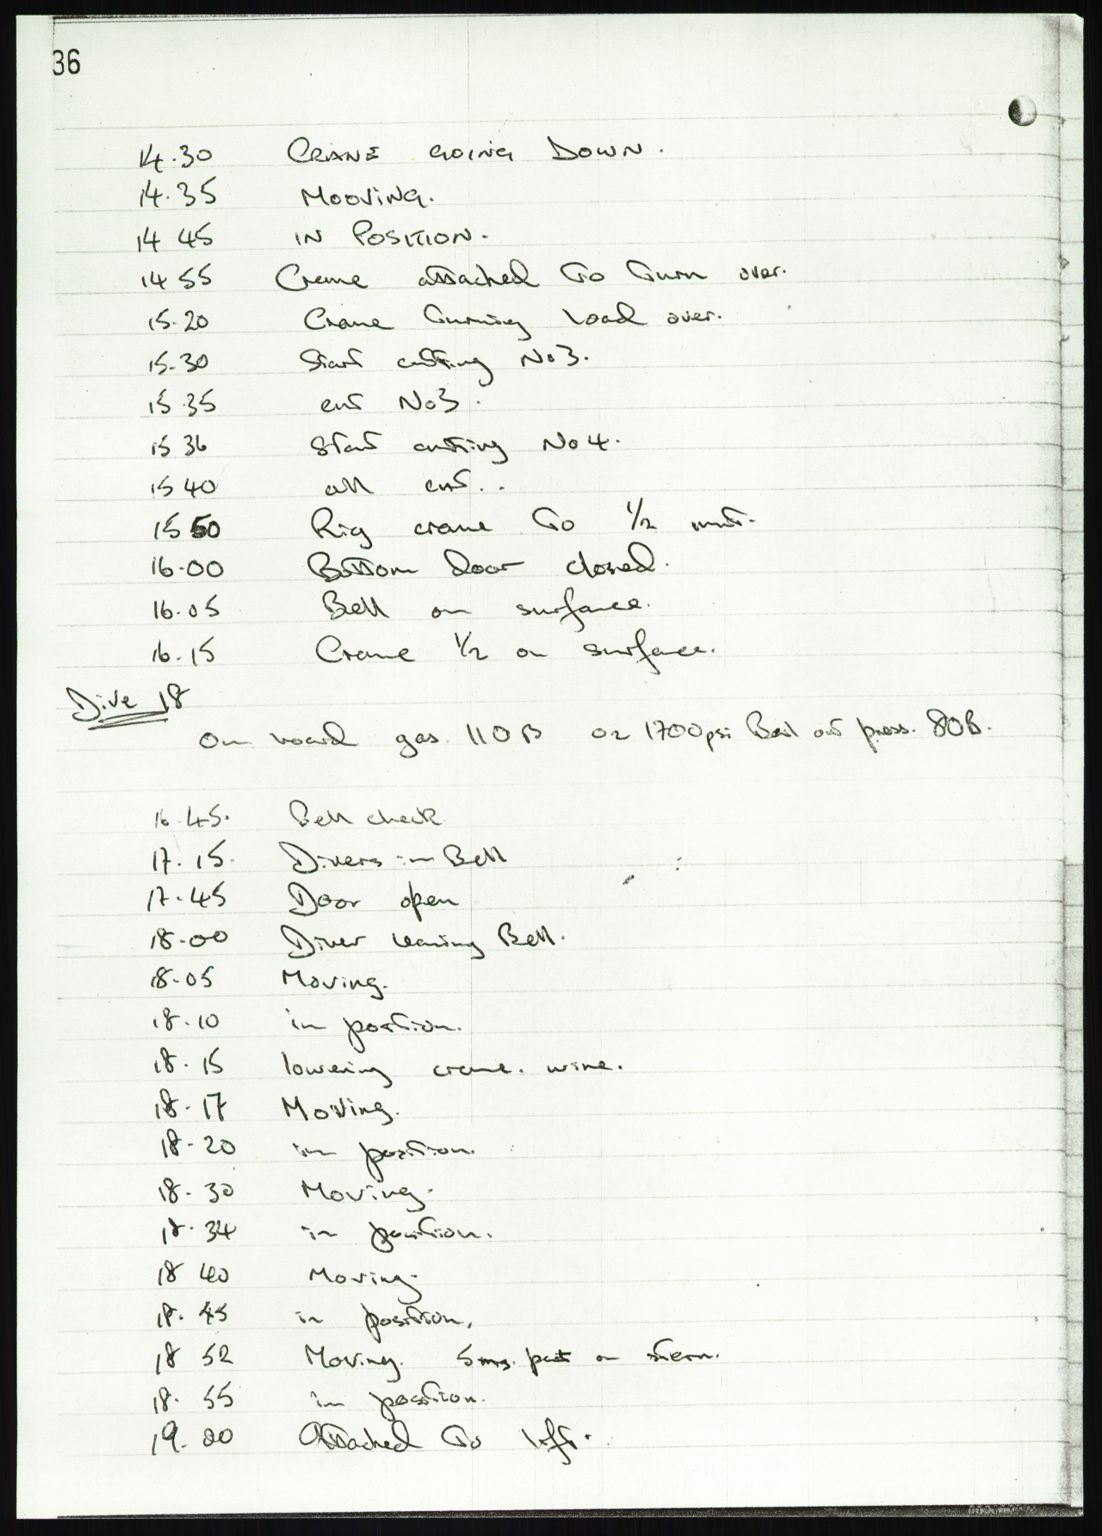 36
14.30 CRANE GOING DOWN.
14.35 MOOVING.
14 45 IN POSITION.
14 55 Crane attached to turn over.
15.20 Crane turning load over.
15.30 Start cutting No3.
15 35 cut No3.
15 36 Start cutting No 4.
15 40 all cut..
15 50 Rig crane to 1/2 unit.
16.00 Bottom door closed.
16.05 Bell on surface.
16.15 Crane 1/2 on surface.
Dive 18
On board gas 110B O2 1700psi Bail out press. 80B.
16.45. Bell check
17.15. Divers in Bell
17.45 Door open
18.00 Diver leaving Bell.
18.05 Moving.
18.10 in position.
18.15 lowering crane. wire.
18.17 Moving.
18.20 in position.
18.30 Moving.
18.34 in position.
18 40 Moving.
18.45 in position.
18 52 Moving. 5 mts. port on stern.
18.55 in position.
19.00 Attached to lift.